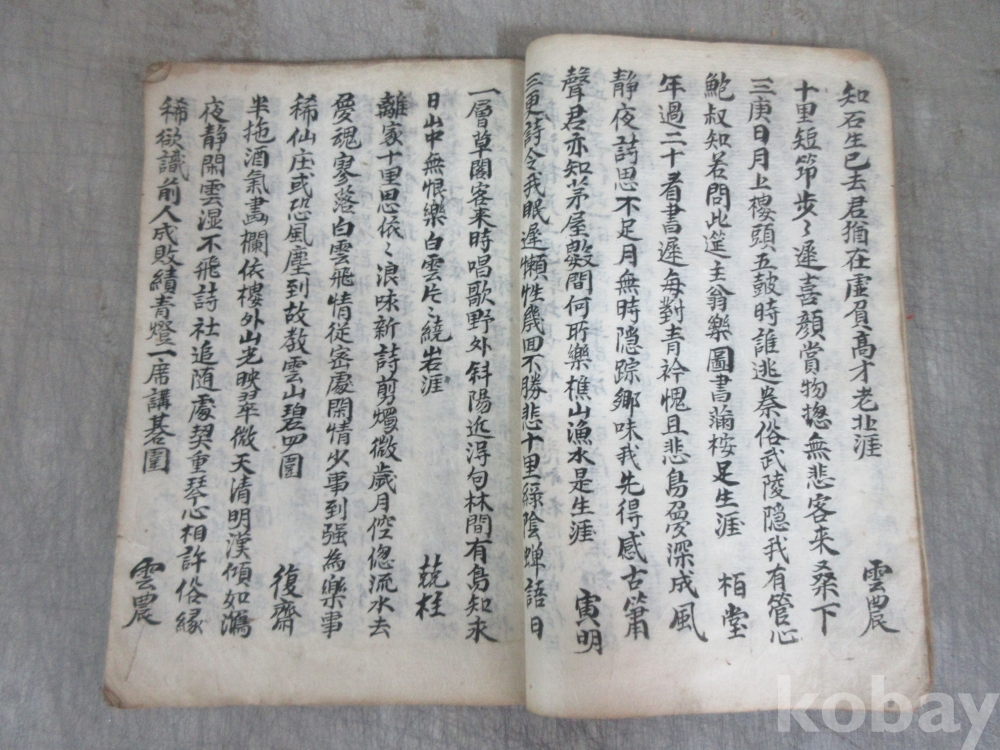 知石生已去君猶在虛負高才老北涯 雲農
十里短笻步〻遲喜顔賞物揔無悲客來桑下
三庚日月上樓頭五皷時誰逃秦俗武陵隱我有管心
鮑叔知若問此筵主翁樂圖書滿桉足生涯 栢堂
年過二十看書遲每對青衿愧且悲島憂深成風
靜夜詩思不足月無時隐踪鄉味我先得感古簫
聲君亦知茅屋數間何所樂樵山漁水是生涯 寅明
三更詩令我眠遲懶性幾回不勝悲十里綠陰蟬語日
一層草閣客來時唱歌野外斜陽近淂句林間有鳥知来
日山中無恨樂白雲片〻繞岩涯 兢柱
離家十里思依〻浪咏新詩剪燭微歲月倥偬流水去
憂魂寥落白雲飛情從密處閑情少事到强為樂事
稀仙庄或恐風塵到故教雲山碧四圍 復齋
半拖酒氣畵欄依樓外山光映翠微天清明漢傾如瀉
夜静閑雲湿不飛詩社追随處契重琴心相許俗緣
稀欲識前人成敗績青燈一席講碁圍 雲農
kobay